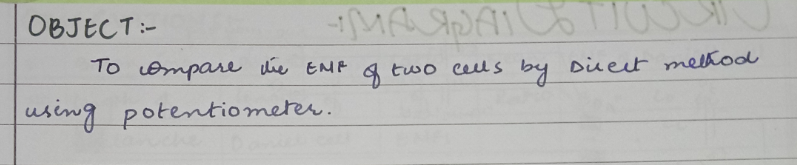 OBJECT:-
To compare the EMF of two cells by Direct method
using potentiometer.